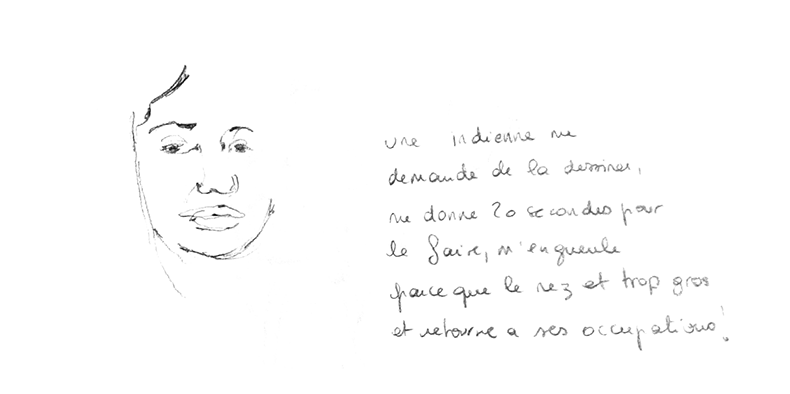 une indienne me
demande de la dessiner,
me donne 20 secondes pour
le faire, m'engueule
parce que le nez et trop gros
et retourne a ses occupations!